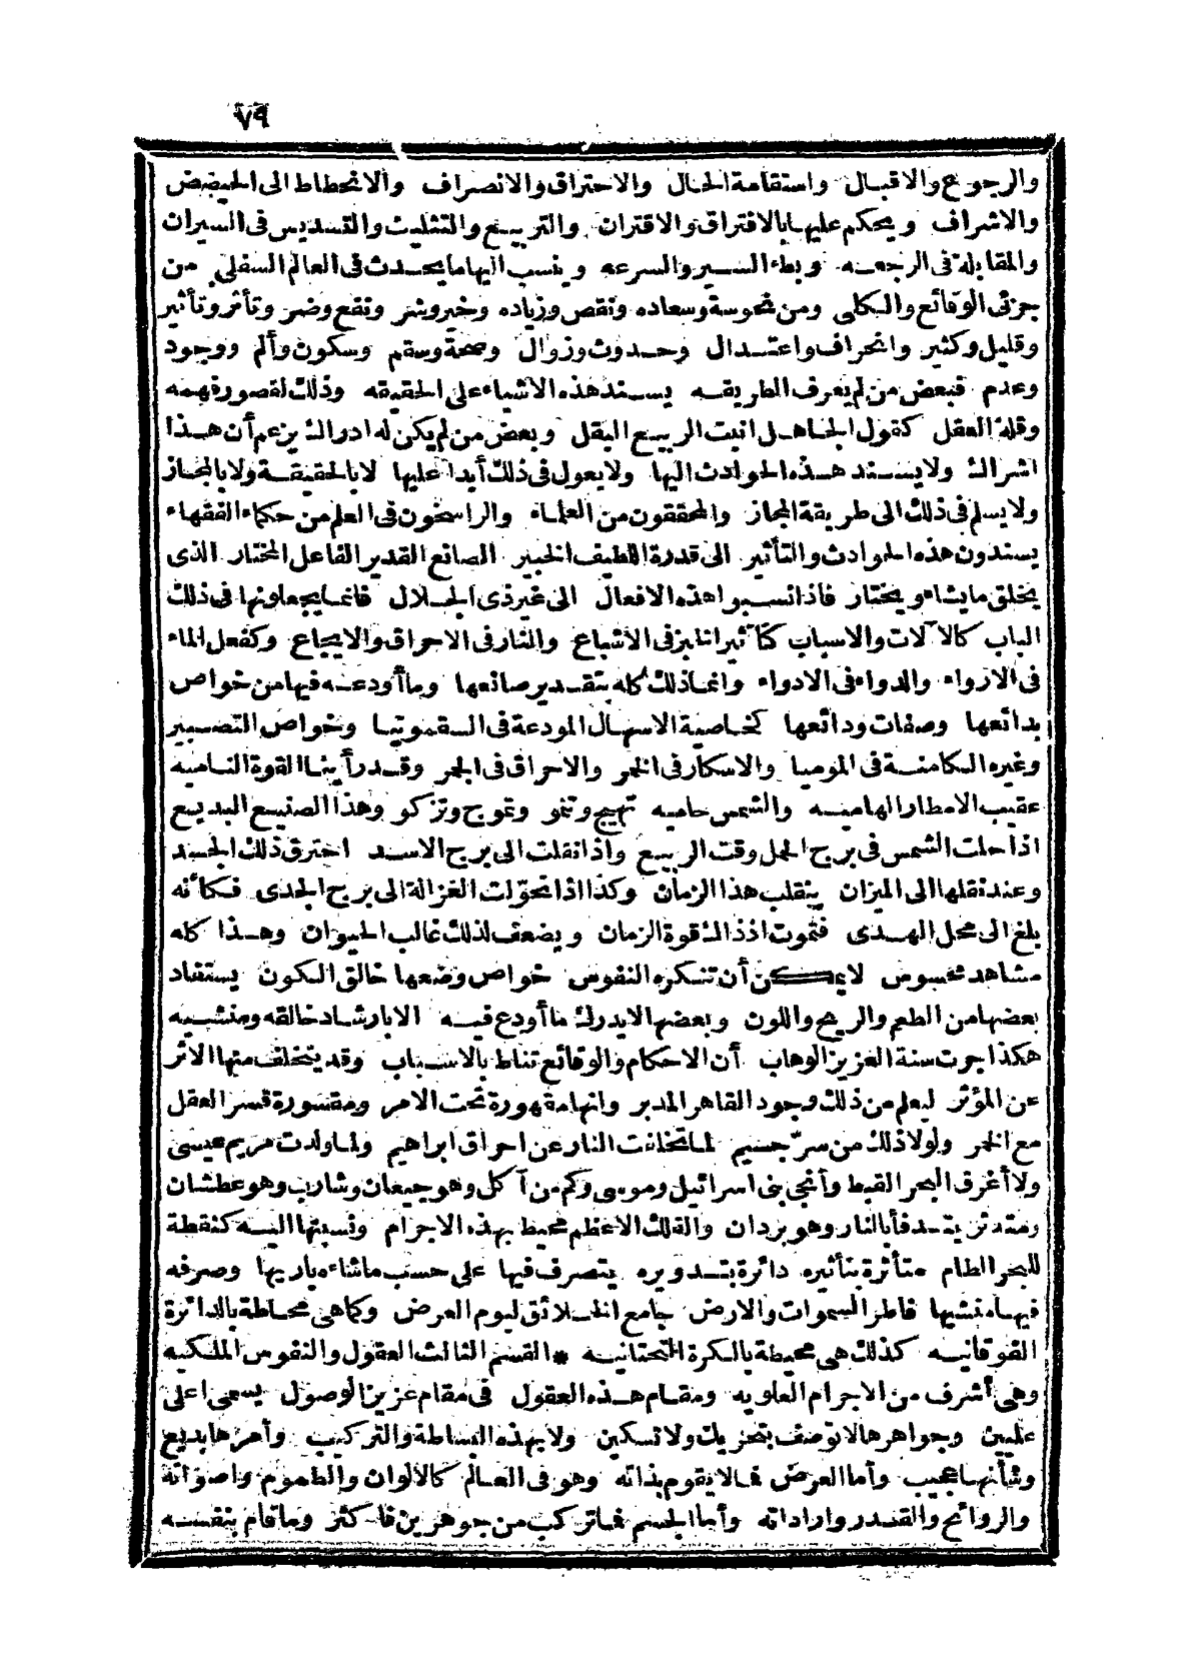 ٧٩
والرجوع والاقبال واستقامة الحال والاحتراق والانصراف والانحطاط الى الحضيض
والاشراف ويحكم عليها بالافتراق والاقتران والتربيع والتثليث والتسديس فى السيران
والمقابلة فى الرجعه وبطاء السير والسرعه وينسب اليها ما يحدث فى العالم السفلى من
جزئى الوقائع والكلى ومن نحوسة وسعاده ونقص وزياده وخير وشر ونفع وضر وتأثر وتأثير
وقليل وكثير وانحراف واعتدال وحدوث وزوال وصحة وسقم وسكون وألم ووجود
وعدم فبعض من لم يعرف الطريقه يسند هذه الاشياء على الحقيقه وذلك لقصور فهمه
وقلة العقل كقول الجاهل انبت الربيع البقل وبعض من لم يكن له ادراك يزعم أن هذا
اشراك ولا يسند هذه الحوادث اليها ولا يعول فى ذلك أبدا عليها لا بالحقيقة ولا بالمجاز
ولا يسلم فى ذلك الى طريقة المجاز والمحققون من العلماء والراسخون فى العلم من حكماء الفقهاء
يسندون هذه الحوادث والتأثير الى قدرة اللطيف الخبير الصانع القدير الفاعل المختار الذى
يخلق ما يشاء ويختار فاذا نسبوا هذه الافعال الى غير ذى الجلال فانما يجعلونها فى ذلك
الباب كالآلات والاسباب كتأثير انابز فى الاشباع والنار فى الاحراق والايجاع وكفعل الماء
فى الارواء والدواء فى الادواء وانما ذلك كله بتقدير صانعها وما أودعه فيها من خواص
بدائعها وصفات ودائعها كخاصية الاسهال المودعة فى السقمونيا وخواص التصبير
وغيره الكامنة فى الموميا والاسكار فى الخمر والاحراق فى الجمر وقد رأينا القوة الناميه
عقيب الامطار الهاميه والشمس حاميه تهيج وتنمو وتموج وتزكو وهذا الصنيع البديع
اذا حلت الشمس فى برج الحمل وقت الربيع واذا نقلت الى برج الاسد احترق ذلك الجسد
وعند نقلها الى الميزان ينقلب هذا الزمان وكذا اذا تحوّلت الغزالة الى برج الجدى فكأنه
بلغ الى محل الهدى فتموت اذ ذاك قوة الزمان ويضعف لذلك غالب الحيوان وهذا كله
مشاهد محسوس لا يمكن أن تنكره النفوس خواص وضعها خالق الكون يستفاد
بعضها من الطعم والريح واللون وبعضها لا يدرك ما أودع فيه الا بارشاد خالقه ومنشيه
هكذا جرت سنة العزيز الوهاب أن الاحكام والوقائع تناط بالاسباب وقد يتخلف منها الاثر
عن المؤثر ليعلم من ذلك وجود القاهر المدبر وانها مقهورة تحت الامر ومقسورة قسر العقل
مع الخمر ولولا ذلك من سرّ جسيم لما تخلفت النار عن احراق ابراهيم ولما ولدت مريم عيسى
ولا أغرق البحر القبط وأنجى بنى اسرائيل وموسى وكم من آكل وهو جيعان وشارب وهو عطشان
ومتدثر يتدفأ بالنار وهو بردان والفلك الاعظم محيط بهذه الاجرام ونسبتها اليه كنقطة
للبحر الطام متأثرة بتأثيره دائرة بتدويره يتصرف فيها على حسب ما شاءه باريها وصرفه
فيها منشيها فاطر السموات والارض جامع الخلائق ليوم العرض وكما هى محاطة بالدائرة
الفوقانيه كذلك هى محيطة بالكرة التحتانيه * القسم الثالث العقول والنفوس الملكيه
وهى أشرف من الاجرام العلويه ومقام هذه العقول فى مقام عزيز الوصول يسمى اعلى
عليين وجواهرها لا توصف بتحريك ولا تسكين ولا بهذه البساطة والتركيب وأمرها بديع
وشأنها عجيب وأما العرض فما لا يقوم بذاته وهو فى العالم كالالوان والطعوم واصواته
والروائح والقدر واراداته وأما الجسم فما تركب من جوهرين فأكثر وما قام بنفسه